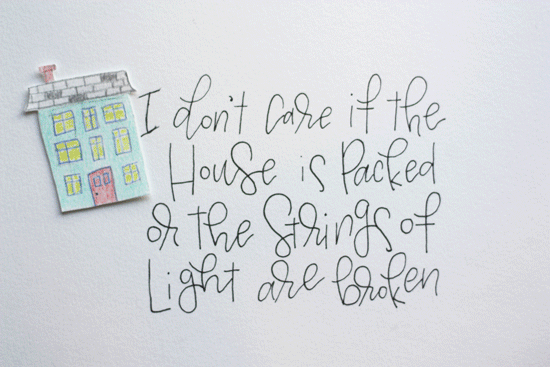 I don't care if the
House is Packed
or the Strings of
Light are broken